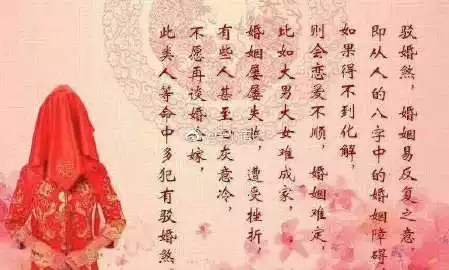 驳婚煞，婚姻易反复之意，
即从人的八字中的婚姻障碍
如果得不到化解，
则会恋爱不顺，婚姻难定。
比如大男大女难成家，
婚姻屡屡失败，遭受挫折，
有些人甚至心灰意冷，
不愿再谈婚论嫁，
此类人等命中多犯有驳婚煞。